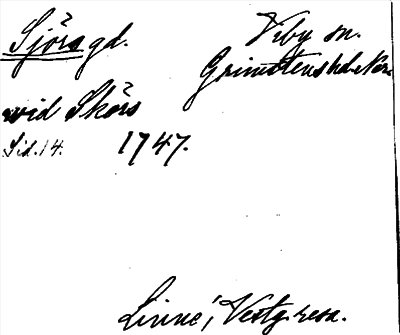 Sjöra gd. Viby sn.
Grimstens hd. När.
wid Skörs
Sid. 14. 1747.
Linné, Västg. resa.